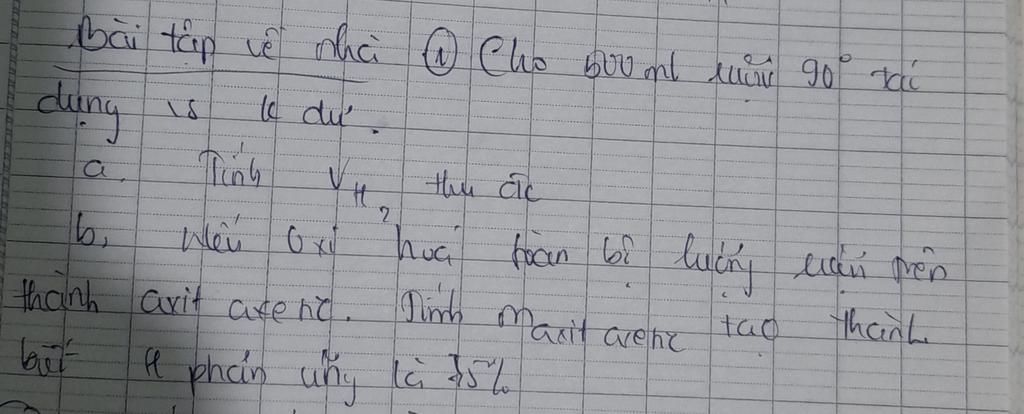 Bài tập về nhà ① Cho 500 ml rượu 90° tác
dụng vs K dư.
a. Tính V H2 thu đc
b, Nếu oxi hoá toàn bộ lượng rượu trên
thành axit axetic. Tính m axit axetic tạo thành
biết H phản ứng là 75%